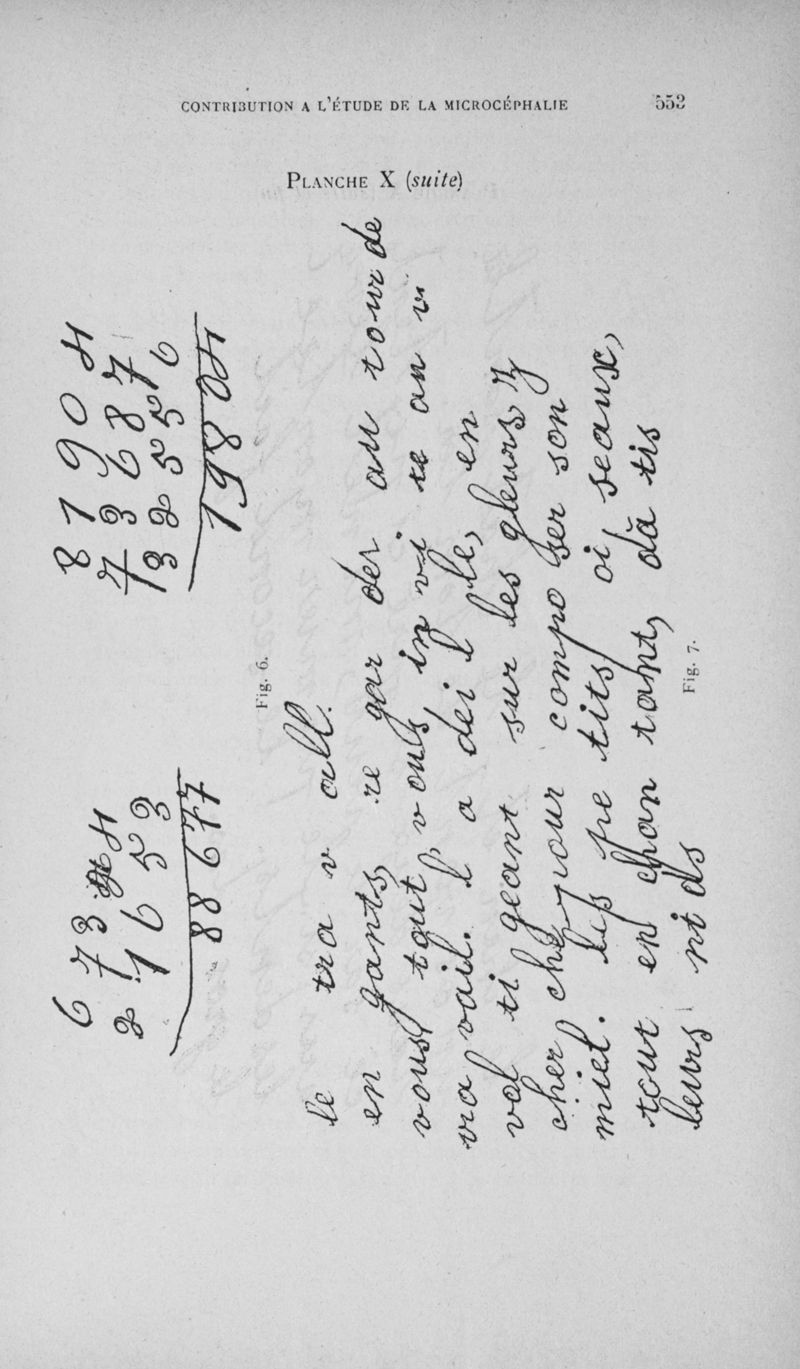 CONTRIBUTION A L'ÉTUDE DE LA MICROCÉPHALIE 553
PLANCHE X (suite)
6 7 3 4
2 1 6 5 3
88 677
8 1 9 0 4
7 3 6 8 7
3 2 5 5 6
198 04
Fig. 6.
le tra v all.
en gants, re gar der au tour de
vous tout, vous in vi te au v
tra vail. l' a dei l le, en
vol ti geant sur les gleurs z
cher che pour compo ser son
miel. les pe tits oi seaux,
tout en chan tant, dà tis
leurs ni ds
Fig. 7.